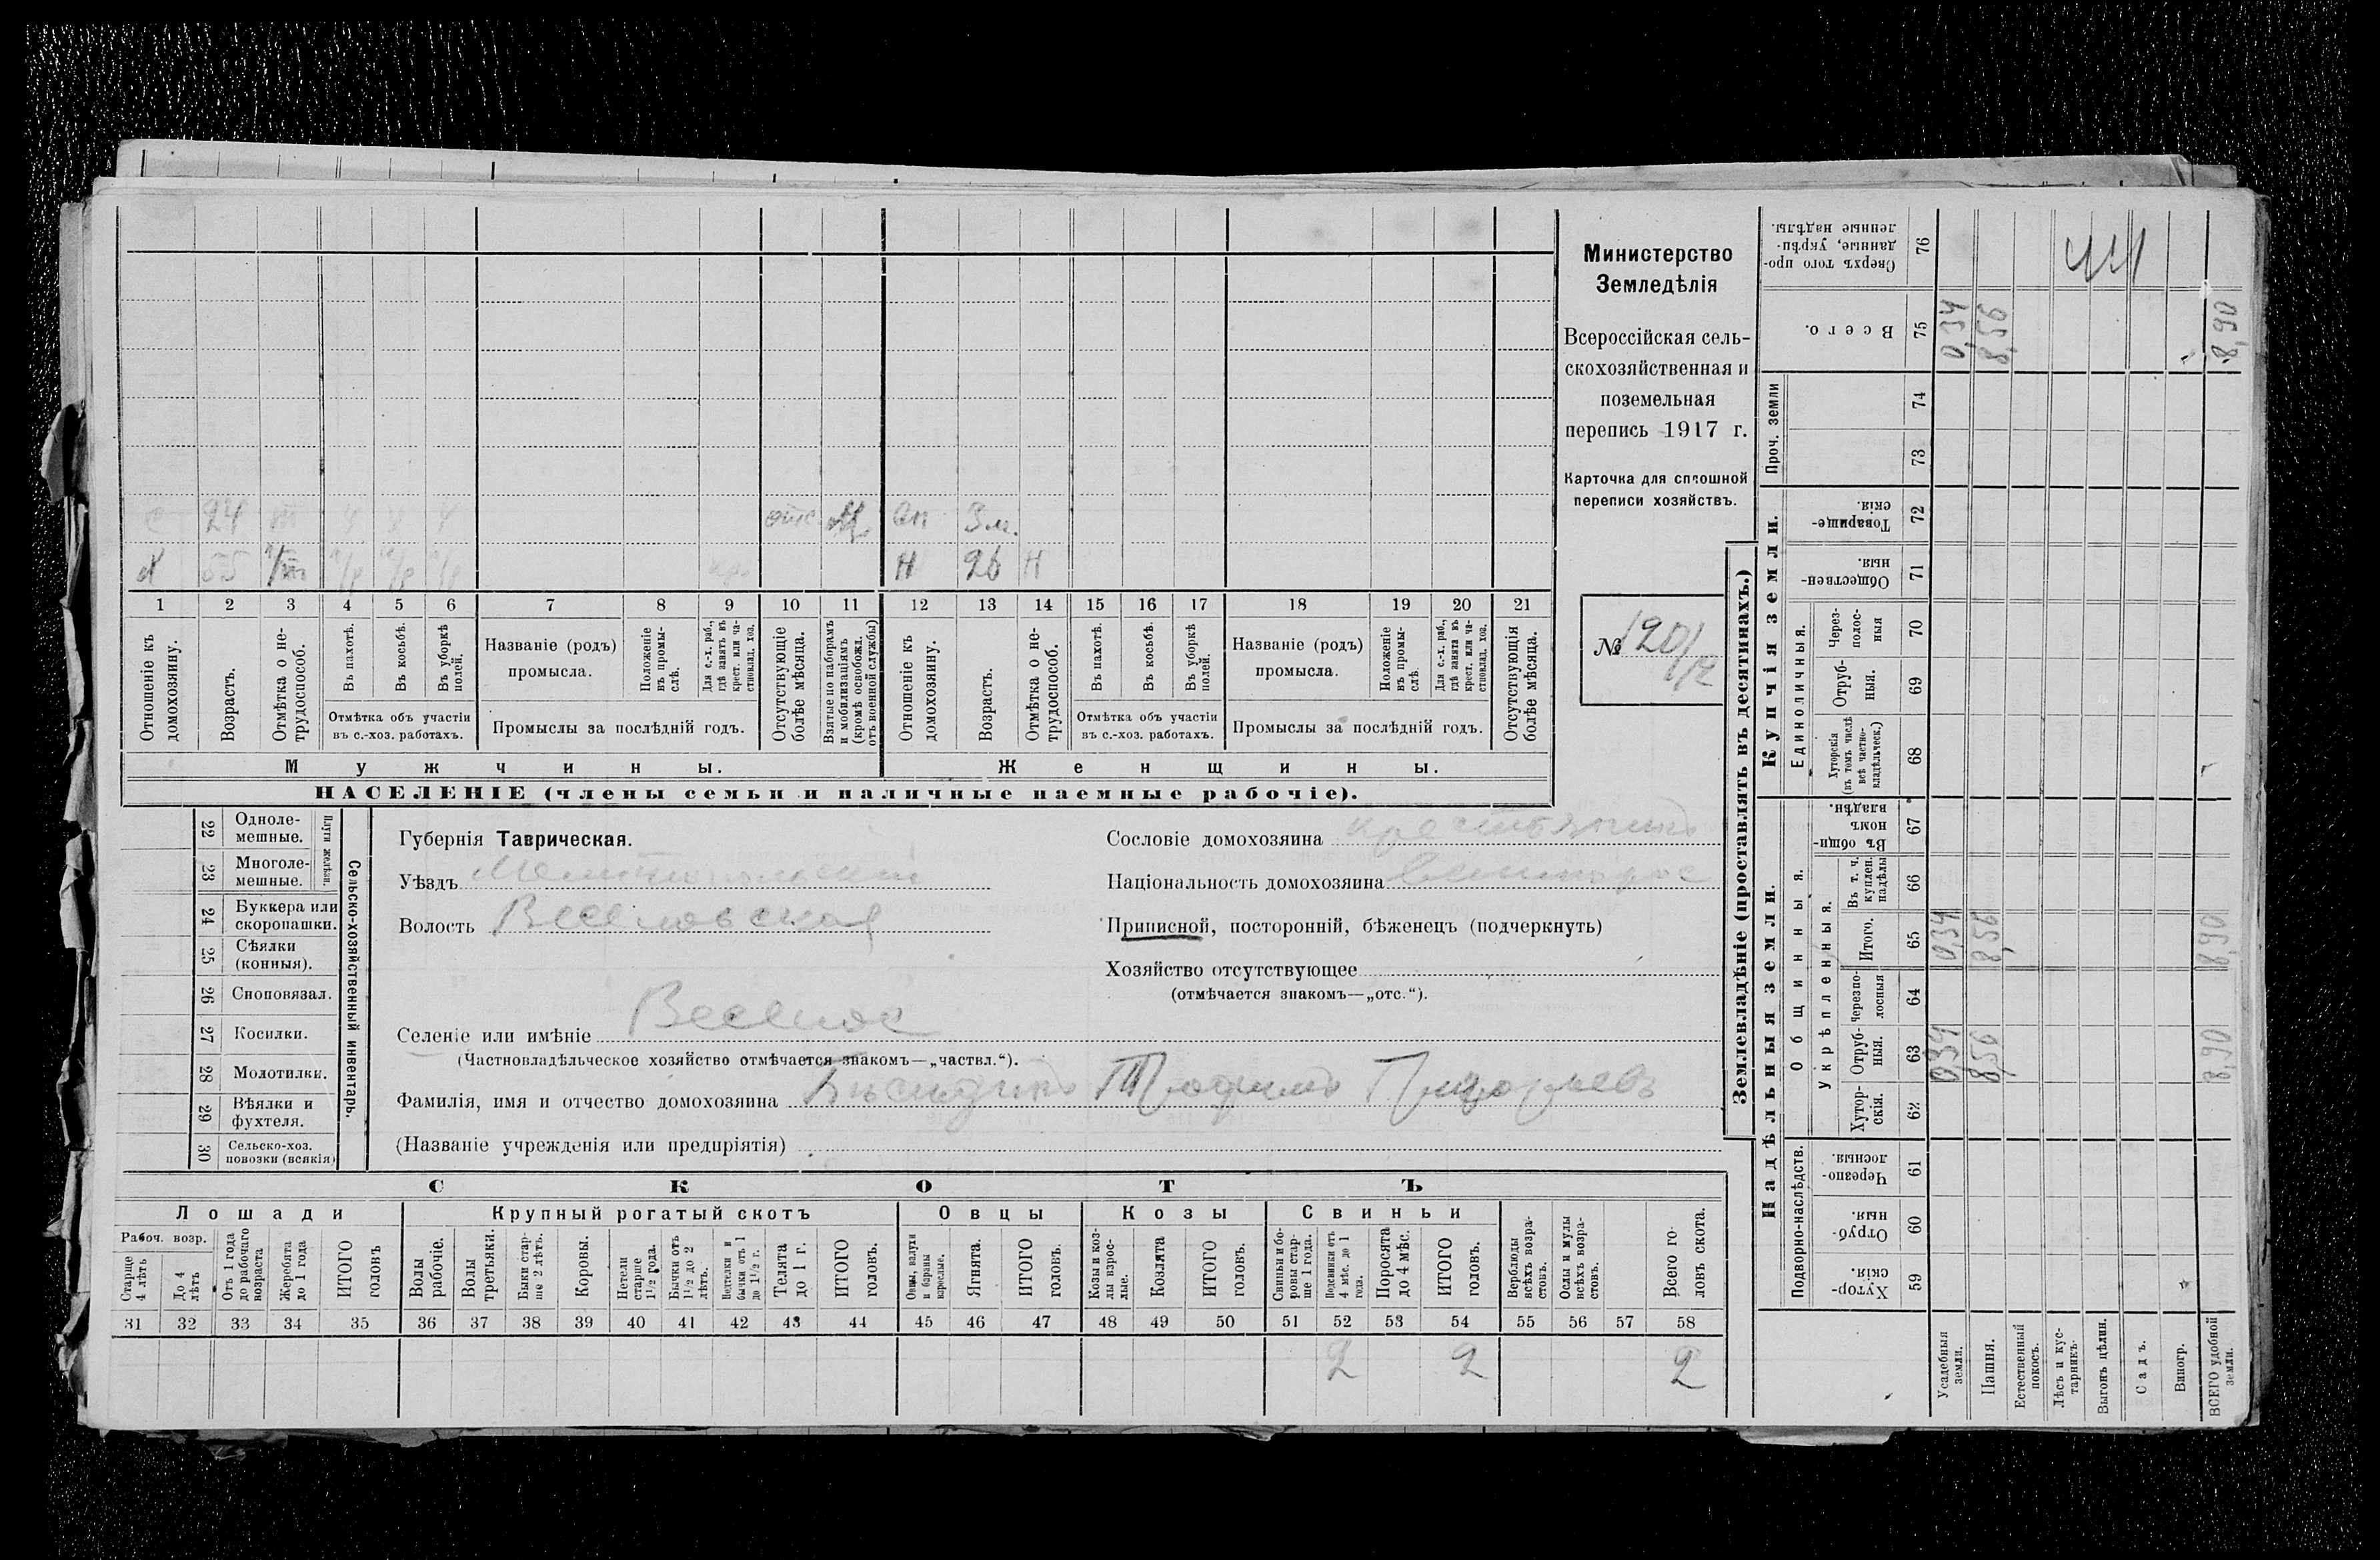 с 24 отс. М.
х 55 26 Н
1 2 3 4 5 6 7 8 9 10 11 12 13 14 15 16 17 18 19 20 21
Отношеніе къ домохозяину.
Возрастъ.
Отмѣтка о не-
трудоспособ.
Въ пахотѣ.
Въ косьбѣ.
Въ уборкѣ
полей.
Отмѣтка объ участіи
въ с.-хоз. работахъ.
Названіе (родъ)
промысла.
Положеніе
въ промы-
слѣ.
Для с.-х. раб.,
гдѣ занятъ въ
крест. или ча-
стновлад. хоз.
Промыслы за послѣдній годъ.
Отсутствующіе
болѣе мѣсяца.
Взятые по наборамъ
и мобилизаціямъ
(кромѣ освобожд.
отъ военной службы)
Отношеніе къ
домохозяину.
Возрастъ.
Отмѣтка о не-
трудоспособ.
Въ пахотѣ.
Въ косьбѣ.
Въ уборкѣ
полей.
Отмѣтка объ участіи
въ с.-хоз. работахъ.
Названіе (родъ)
промысла.
Положеніе
въ промы-
слѣ
Для с.-х. раб.,
гдѣ занята въ
крест. или ча-
стновлад. хоз.
Промыслы за послѣдній годъ.
Отсутствующія
болѣе мѣсяца.
Мужчины.
Женщины.
НАСЕЛЕНІЕ (члены семьи и наличные наемные рабочіе).
Министерство
Земледѣлія
Всероссійская сель-
скохозяйственная и
поземельная
перепись 1917 г.
Карточка для сплошной
переписи хозяйствъ.
№ 120/
22 Однолемешные.
23 Многоле-
мешные.
Плуги желѣзн.
24 Буккера или
скоропашки.
25 Сѣялки
(конныя).
26 Сноповязал.
27 Косилки.
28 Молотилки.
29 Вѣялки и
фухтеля.
30 Сельско-хоз.
повозки (всякія)
Сельско-хозяйственный инвентарь.
Губернія Таврическая.
Уѣздъ Мелитопольский
Волость Веселовская
Селеніе или имѣніе Веселое
(Частновладѣльческое хозяйство отмѣчается знакомъ—„частвл.“).
Фамилія, имя и отчество домохозяина Трофимъ
(Названіе учрежденія или предпріятія)
Сословіе домохозяина крестьянинъ
Національность домохозяина великорос
Приписной, посторонній, бѣженец (подчеркнуть)
Хозяйство отсутствующее
(отмѣчается знакомъ—„отс.“).
СКОТЪ
Лошади
Рабоч. возр.
Старше
4 лѣтъ
До 4
лѣтъ
Отъ 1 года
до рабочаго
возраста
Жеребята
до 1 года
ИТОГО
головъ
Крупный рогатый скотъ
Волы
рабочіе.
Волы
третьяки.
Быки стар-
ше 2 лѣтъ.
Коровы.
Нетели
старше
1½ года.
Бычки отъ
1½ до 2
лѣтъ.
Нетелки и
бычки отъ 1
до 1½ г.
Телята
до 1 г.
ИТОГО
головъ.
Овцы
Овцы, валухи
и бараны
взрослые.
Ягнята.
ИТОГО
головъ.
Козы
Козы и коз-
лы взрос-
лые.
Козлята
ИТОГО
головъ.
Свиньи
Свиньи и бо-
ровы стар-
ше 1 года.
Подсвинки отъ
4 мѣс. до 1
года.
Поросята
до 4 мѣс.
ИТОГО
головъ.
Верблюды
всѣхъ возра-
стовъ.
Ослы и мулы
всѣхъ возра-
стовъ.
Всего го-
ловъ скота.
31 32 33 34 35 36 37 38 39 40 41 42 43 44 45 46 47 48 49 50 51 52 53 54 55 56 57 58
2 2 2
Землевладѣніе (проставлять въ десятинахъ.)
Надѣльныя земли.
Купчія земли.
Проч. земли
Подворно-наслѣдств.
Общинныя.
Укрѣпленныя.
Единоличныя.
Сверхъ того про-
данные, укрѣп-
ленные надѣлы. 76
Всего. 75 0,34 8,56 8,90
74
73
Товарище-
скія. 72
Обществен-
ныя. 71
Через-
полос-
ныя 70
Отруб-
ныя. 69
Хуторскія
(въ томъ числѣ
всѣ частно-
владѣльческ.) 68
Въ общин-
номъ
владѣн. 67
Въ т. ч.
куплен.
надѣлы 66
Итого. 65 0,34 8,56 8,90
Черезпо-
лосныя 64
Отруб-
ныя. 63 0,34 8,56 8,90
Хутор-
скія. 62
Черезпо-
лосныя. 61
Отруб-
ныя. 60
Хутор-
скія. 59
Усадебныя
земли.
Пашня.
Естественный
покосъ.
Лѣсъ и кус-
тарникъ.
Выгонъ цѣлин.
Садъ.
Виногр.
ВСЕГО удобной
земли.